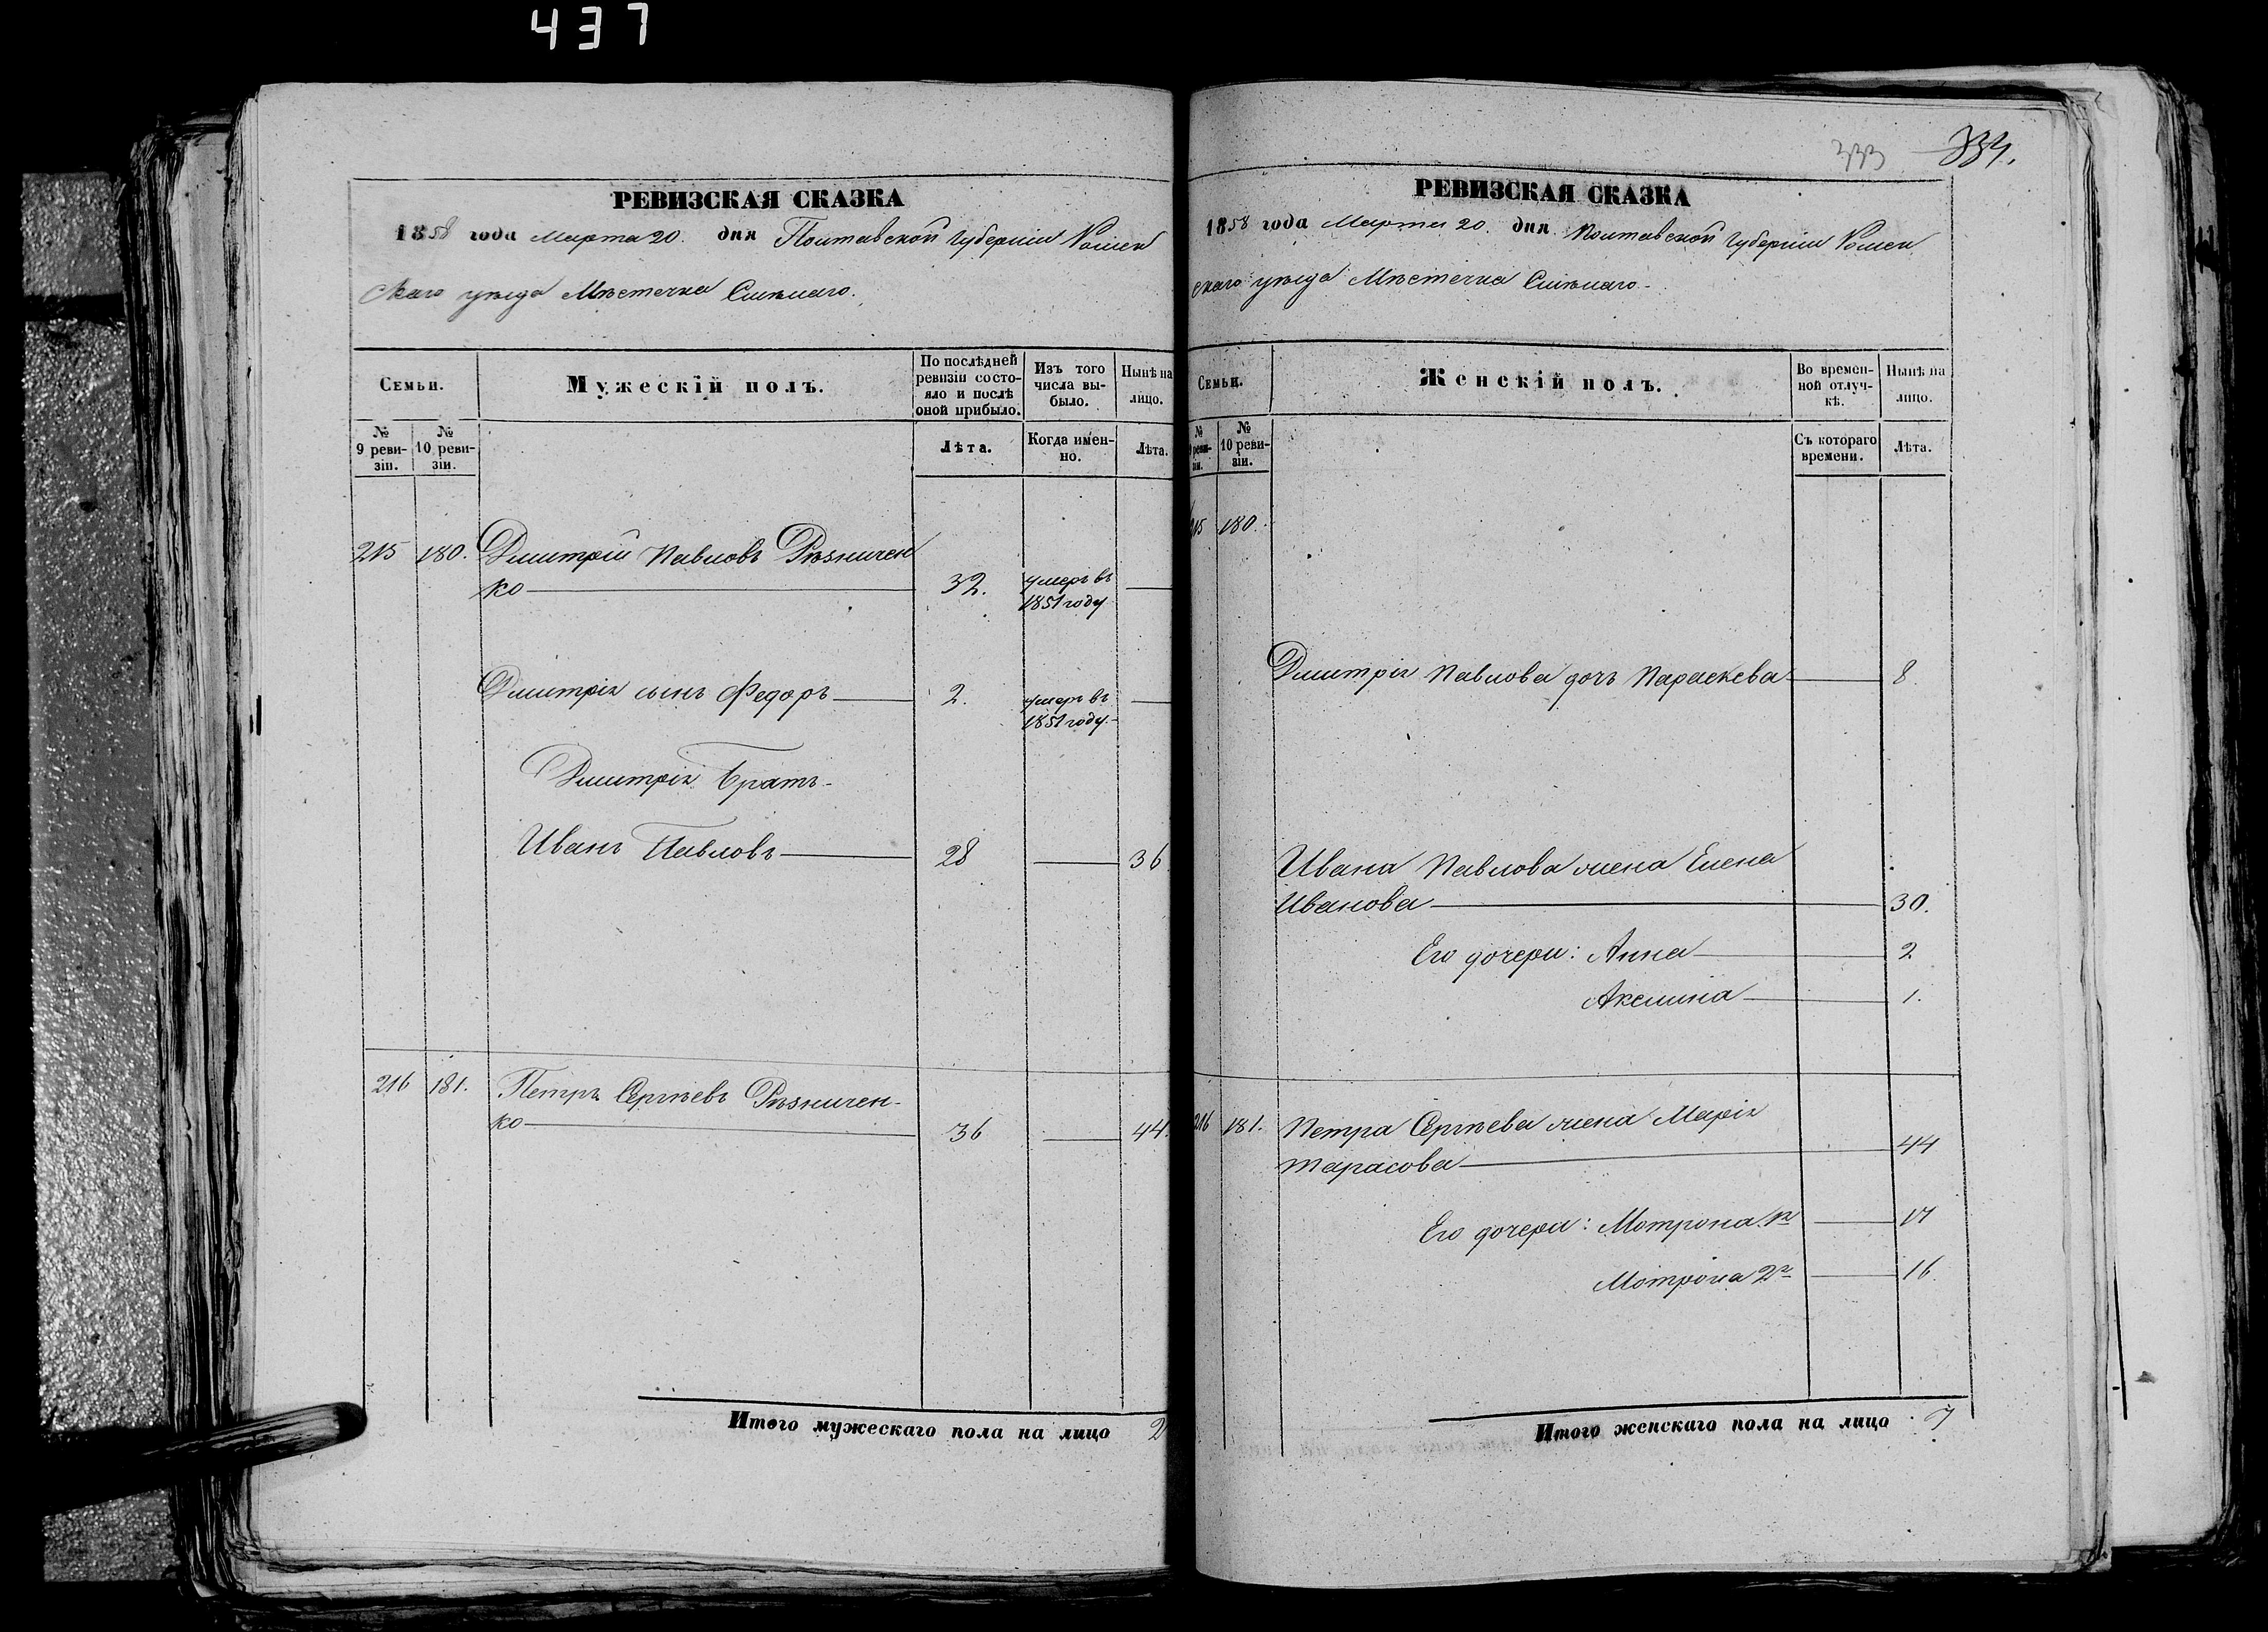 437
РЕВИЗСКАЯ СКАЗКА
1858 года Марта 20. дня Полтавской Губерніи Ромен
скаго уѣзда Мѣстечка Смѣлаго.
Семьи.
Мужескій полъ.
По послѣдней ревизіи состояло и послѣ оной прибыло.
Изъ того числа выбыло.
Нынѣ на лицо.
№ 9 ревизіи.
№ 10 ревизіи.
Лѣта.
Когда именно.
Лѣта.
215 180. Дмитрій Павловъ Рѣзничен
ко 32. умеръ въ 1851 году
Дмитрія сынъ Федоръ 2. умеръ въ 1851 году.
Дмитрія братъ
Иванъ Павловъ 28 36
216 181. Петръ Сергѣевъ Рѣзничен-
ко 36 44.
Итого мужескаго пола на лицо 2
333 334.
РЕВИЗСКАЯ СКАЗКА
1858 года Марта 20. дня Полтавской Губерніи Ромен
скаго уѣзда Мѣстечка Смѣлаго.
Семьи.
Женскій полъ.
Во временной отлучкѣ.
Нынѣ на лицо.
№ 9 ревизіи.
№ 10 ревизіи.
Съ котораго времени.
Лѣта.
215 180.
Дмитрія Павлова дочь Параскева 8
Ивана Павлова жена Елена
Иванова 30.
Его дочери: Анна 2
Акслина 1.
216 181. Петра Сергѣева жена Марія
Тарасова 44
Его дочери: Мотрона 1я 17
Мотрона 2я 16.
Итого женскаго пола на лицо 7